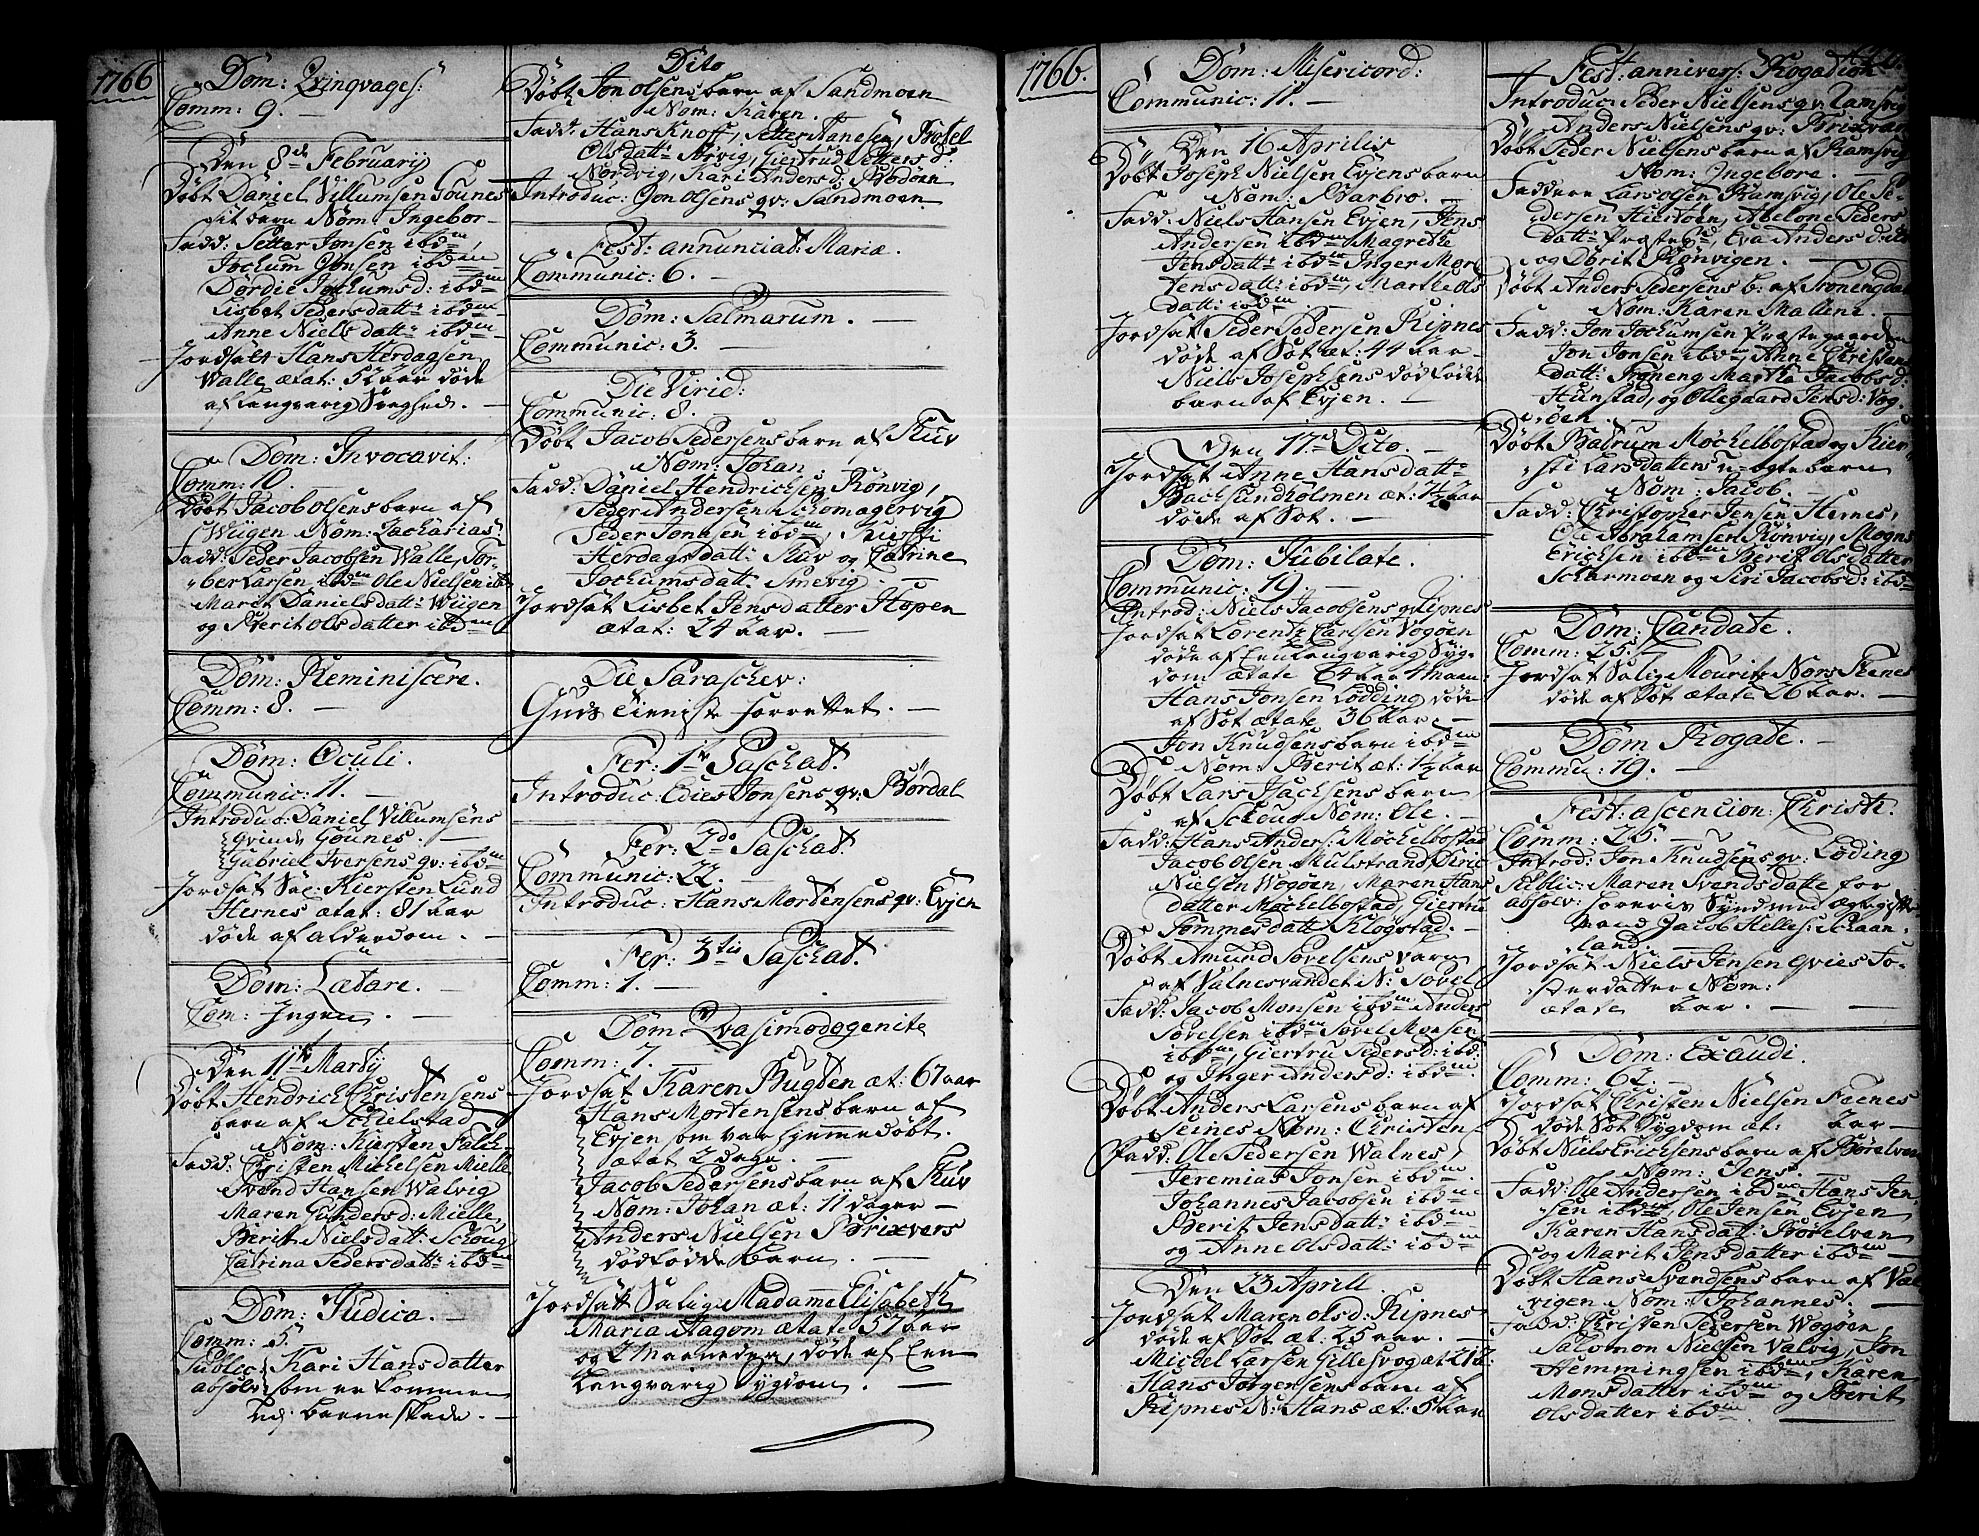 1766
Dom: Qvinqvages:
Comm: 9. —
Den 8de February
Døbt Daniel Villumsen Gounes
dit barn Nom: Ingebor-
Fadd: Petter Jonsen ibdm,
Jochum Jonsen ibdm
Dordie Jochumsd: ibdm
Lisbet Pedersdatt: ibdm
Anne Nielsdatt: ibdm —
Jordsatt Hans Herdagsen
Walle ætat: 52 aar døde
af Langvarig Svaghed. —
Dom: Invocavit:
Comm: 10. —
Døbt Jacob Olsens barn af
Wiigen Nom: Zacharias
Fadd: Peder Jacobsen Walle, Tor-
ber Larsen ibdm Ole Nielsen ibd
Marit Danielsdatt: Wiigen
og Berit Olsdatter ibdm
Dom: Reminiscere.
Comm: 8. —
Dom: Oculi.
Communic: 11. —
Introduc: Daniel Villumsens
qvinde Gounes. —
Gabriel Iversens qv: ibdm
Jordsat Sal: Kiersten Lund
Hernes ætat: 81 aar
døde af alderdom. —
Dom: Lætare. —
Com: Ingen. —
Den 11te Martij
Døbt Hendrich Christensens
barn af Schielstad
Nom: Kiersten Falch-
Fadd: Christen Michelsen Mielle
Svend Hansen Walvig
Maren Gundersd: Mielle,
Berit Nielsdatt: Schoug
Catrina Pedersdatt: ibdm
Dom: Judica. —
Comm: 5.
Public: Kari Hansdatter
absolv: som er kommen
til barneskade. —
Dito
Døbt Jon Olsens barn af Sandmoen
Nom: Karen.
Fadd: Hans Knoff, Petter Hanesen,
Olsdatt: Nørvig, Giertrud Pettersd:
Nordvig, Kari Andersd: Bodøen
Introduc: Jon Olsens qv: Sandmoen
Fest: annunciat: Mariæ.
Communic: 6. —
Dom: Palmarum. —
Communic: 3. —
Die Virid:
Communic: 8. —
Døbt Jacob Pedersens barn af Kuv
Nom: Johan
Fadd: Daniel Hendrichsen Rønvig,
Peder Andersen Schomagervig
Peder Jonasen ibdm,
Herdagsdatt: Kuv og Catrine
Jochumsdatt: Smevig. —
Jordsat Lisbet Jensdatter Hopen
ætat: 24 aar. —
Die Paraschev:
Guds tieniste forrettet. —
Fer: 1te Paschat:
Introduc: Edies Jonsens qv: Børdal
Fer: 2do Paschat:
Communic: 22. —
Introduc: Hans Mordensens qv: Evjen
Fer: 3tia Paschat:
Comm: 1. —
Dom: Qvasimodogenite
Comm: 7. —
Jordsat Karen Bugden æt: 67 aar
Hans Mortensens barn af
Evjen som var hjemmedøbt.
ætat 2 dage. —
Jacob Pedersens barn af Kuv
Nom: Johan æt: 11 dager —
Anders Nielsen Brixvers
dødfødde barn. —
Jordsatt Salig Madame Elisabeth
Maria Hagom ætate 57 aar
og 2 Maaneder, døde af Een
Langvarig Sygdom. —
1766.
Dom: Misericord:
Communic: 11. —
Den 16 Aprilis
Døbt Joseph Nielsen Evjens barn
Nom: Barbro. —
Fadd: Niels Hansen Evjen, Jens
Andersen ibdm Magrethe
Jensdatt: ibdm Inger Mor-
tensdatt: ibdm, Marthe Ols
datt: ibdm. —
Jordsat Peder Pedersen Ripnes
døde af Sot æt: 44 aar —
Niels Josephsens dødfødde
barn af Evjen. —
Den 17de Dito. —
Jordsat Anne Hansdatt:
Bachsundholmen æt: aar
døde af Sot. —
Dom: Jubilate.
Communic: 19. —
Introd: Niels Jacobsens qv Ripnes
Jordsat Lorentz Carlsen Vogøen
døde af Een Langvarig Syg-
dom ætate 64 aar 4 maan:
Hans Jonsen Lodding døde
af Sot ætate 36 aar. —
Jon Knudsens barn ibdm
Nom: Berit æt: 1½ aar
Døbt Lars Isachsens barn
af Schoug Nom: Ole. —
Fadd: Hans Anders: Møckelbostad
Jacob Olsen Mulstrand,
Nielsen Wogøen, Maren Hans
datter Møckelbostad, Giertru
Tommesdatt: Klogstad. —
Døbt Amund Povelsens barn
af Valnesvandet N: Povel
Fadd: Jacob Monsen ibdm Anders
Povelsen ibdm Povel Monsen
ibdm, Giertru Pedersd: ibd:
og Inger Andersd: ibdm.
Døbt Anders Larsens barn af
Seines Nom: Christen
Fadd: Ole Pedersen Walnes,
Jeremias Jonsen ibdm
Johannes Jacobsen ibdm
Berit Jensdatt: ibdm
og Anne Olsdatt: ibdm
Den 23 Aprill.
Jordsat Maren Olsd: Ripnes
døde af Sot æt: 25 aar. —
Michel Larsen Gillesvog æt
Hans Jørgensens barn af
Ripnes N: Hans æt: 5 aar
Fest: annivers: Rogation
Introduc: Peder Nielsens qv: Ramsvig
Anders Nielsens qv: Brixvær
Døbt Peder Nielsens barn af Ramsvig
Nom: Ingebore. —
Faddere Lars Olsen Ramsvig, Ole Pe-
dersen Hiertøen, Abelone Peders
datt: Præstegd, Eva Andersd: ibd
og Dorit Rønvigen. —
Døbt Anders Pedersens b: af Troneng
Nom: Karen Mallene. —
Fadd: Jon Jochumsen Præstegaarden
Jon Jonsen ibdm Anne Christens
datt: Troneng Martha Jacobsd:
Hunstad, og Ollegaard Jensd: Vog-
øen
Døbt Møckelbostad og Kier-
sti Larsdatters u-ægte barn
Nom: Jacob. —
Fadd: Christopher Jensen Hernes,
Ole Abrahamsen Rønvig, Mogns
Erichsen ibdm Berit Olsdatter
Scharmoen og Siri Jacobsd: ibdm
Dom: Candate.
Comm: 25. —
Jordsat Salig Mouritz Nors Fenes
døde af Sot ætate 26 aar. —
Dom Rogate. —
Commu: 19. —
Fest: ascencion: Christi.
Comm: 25. —
Introd: Jon Knudsens qv: Loding
Public: Maren Svendsdatte for
absolv: Synd med
mand Jacob Helles: Schaan-
land. —
Jordsat Niels Jensen Fo-
sterdatter Nom:
ætate aar. —
Dom: Exaudi.
Comm: 62. —
Jordsat Christen Nielsen Fenes
døde Sot Sygdom æt: aar —
Døbt Niels Erichsens barn af Børelven
Nom: Jens.
Fadd: Ole Andersen ibdm Hans Jen
sen ibdm, Ole Jensen Evjen
Karen Hansdatt: Børelven
og Marit Jensdatter ibdm
Døbt Hans Svendsens barn af Val
vigen Nom: Johannes. —
Fadd: Christen Pedersen Wogøen,
Salomon Nielsen Valvig, Jon
Hemmingsen ibdm, Karen
Monsdatter ibdm og Berit
Olsdatter ibdm.